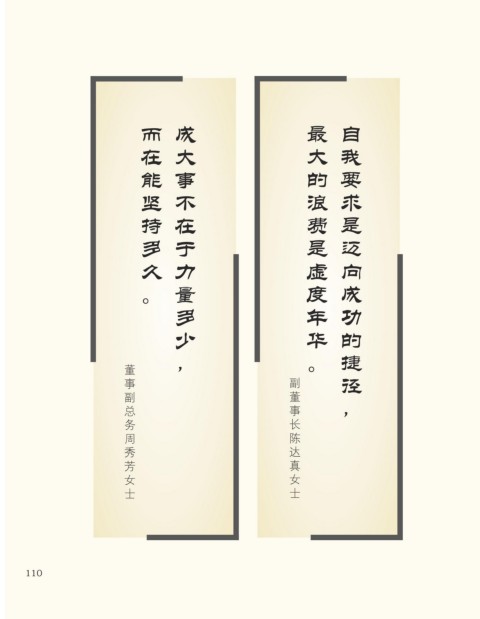 自我要求是迈向成功的捷径，
最大的浪费是虚度年华。
副董事长陈达真女士
成大事不在于力量多少，
而在能坚持多久。
董事副总务周秀芳女士
110